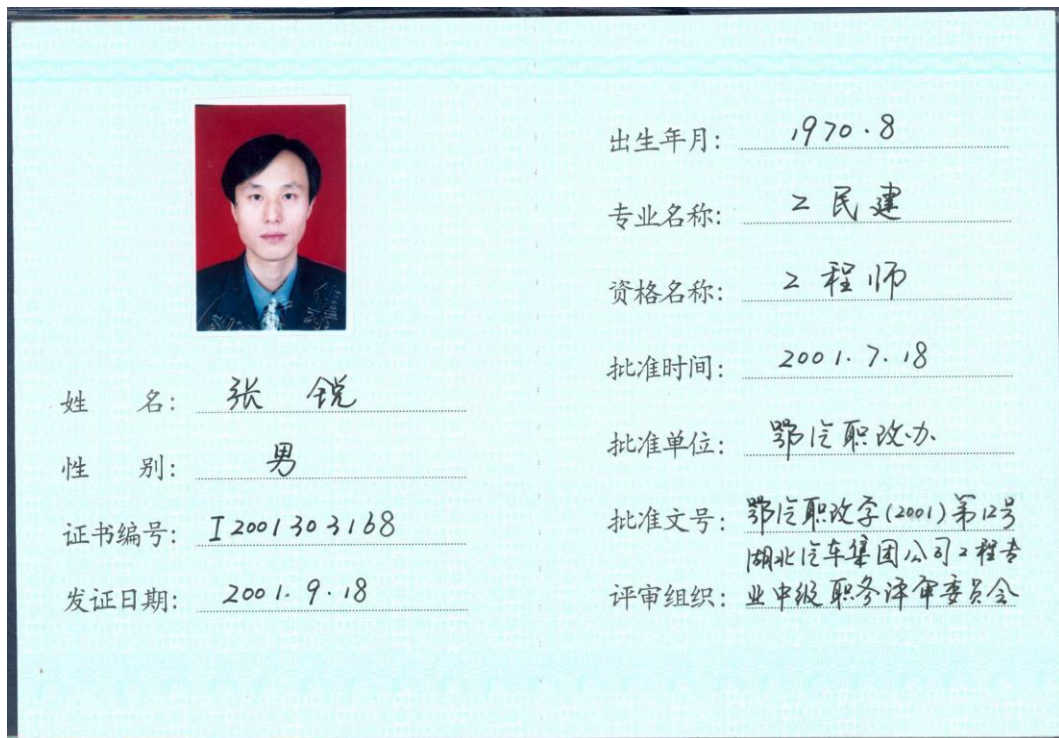 姓 名: 张 锐
性 别: 男
证书编号: I2001303168
发证日期: 2001.9.18
出生年月: 1970.8
专业名称: 工民建
资格名称: 工程师
批准时间: 2001.7.18
批准单位: 鄂汽职改办
批准文号: 鄂汽职改字(2001)第12号
湖北汽车集团公司工程专
评审组织: 业中级职务评审委员会